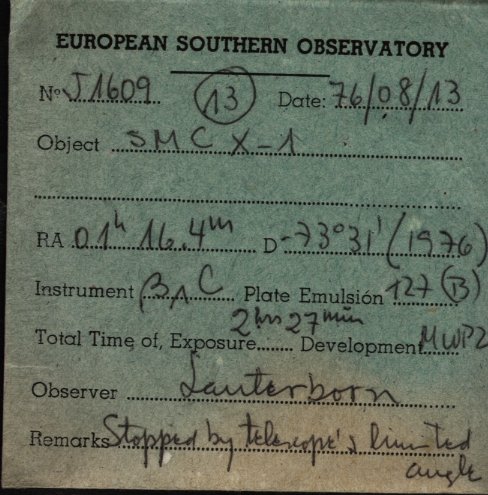 EUROPEAN SOUTHERN OBSERVATORY
Nº J1609 13 Date: 76/08/13
Object SMC X-1
RA 01h 16.4m D -73°31' (1976)
Instrument B&C Plate Emulsión 127 (B)
Total Time of, Exposure 2hrs 27min Development MWP2
Observer Lauterborn
Remarks Stopped by telescope's limited
angle